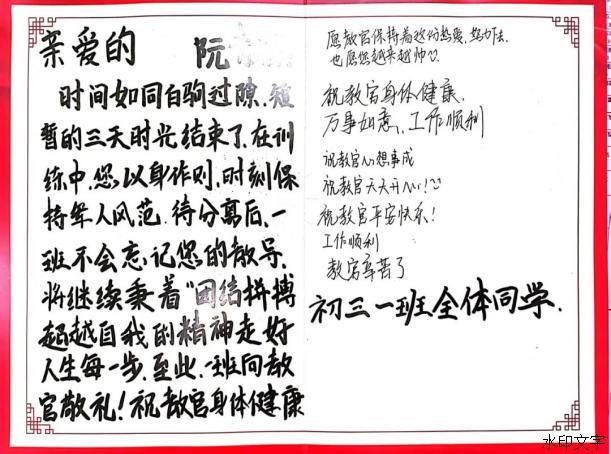 亲爱的 阮
时间如同白驹过隙，短
暂的三天时光结束了，在训
练中，您以身作则，时刻保
持军人风范，待分离后，一
班不会忘记您的教导，
将继续秉着“团结拼搏
超越自我的精神走好
人生每一步，至此，一班向教
官敬礼！祝教官身体健康
愿教官保持着这份热爱，努力下去，
也愿您越来越帅
祝教官身体健康，
万事如意，工作顺利
祝教官心想事成
祝教官天天开心！
祝教官平安快乐！
工作顺利
教官辛苦了
初三一班全体同学．
水印文字